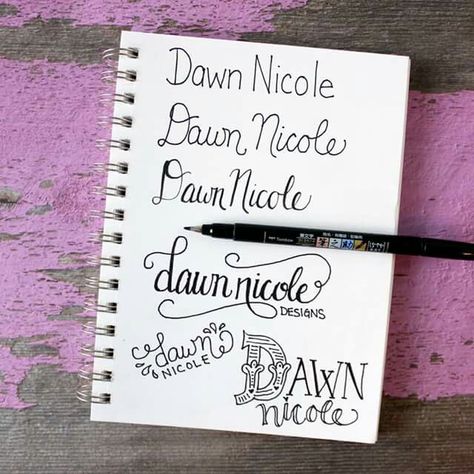 Dawn Nicole
Dawn Nicole
Dawn Nicole
Tombow
dawn nicole
DESIGNS
dawn
NICOLE
DAWN
nicole